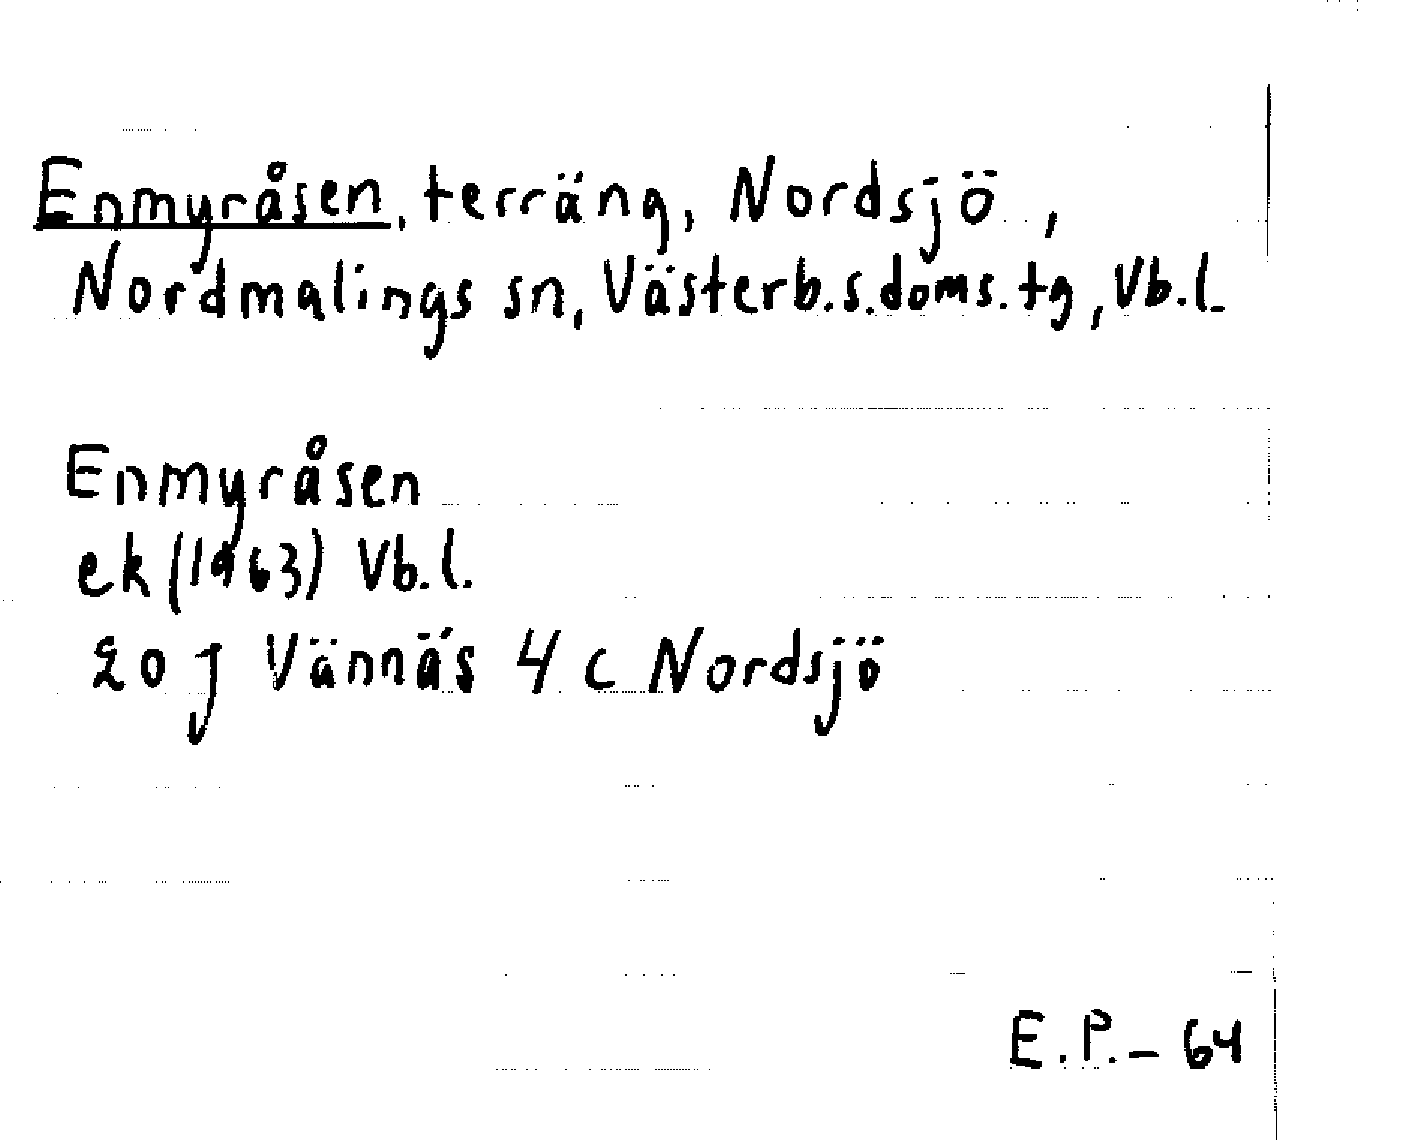 Enmyråsen, terräng, Nordsjö,
Nordmalings sn, Västerb.s.doms.tg, Vb.l.
Enmyråsen
ek (1963) Vb.l.
20 J Vännäs 4 c Nordsjö
E.P. - 64